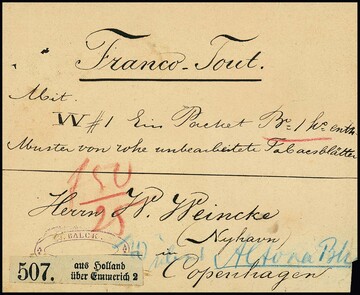 Franco-Tout.
Mit.
W #1 Ein Packet Bo. 1 Ko. enth
Muster von rohe unbearbeitete Tabacsblätter
150
25
Herrn W. Weincke
Nyhavn
Altona Bh
Copenhagen
507.
aus Holland
über Emmerich 2